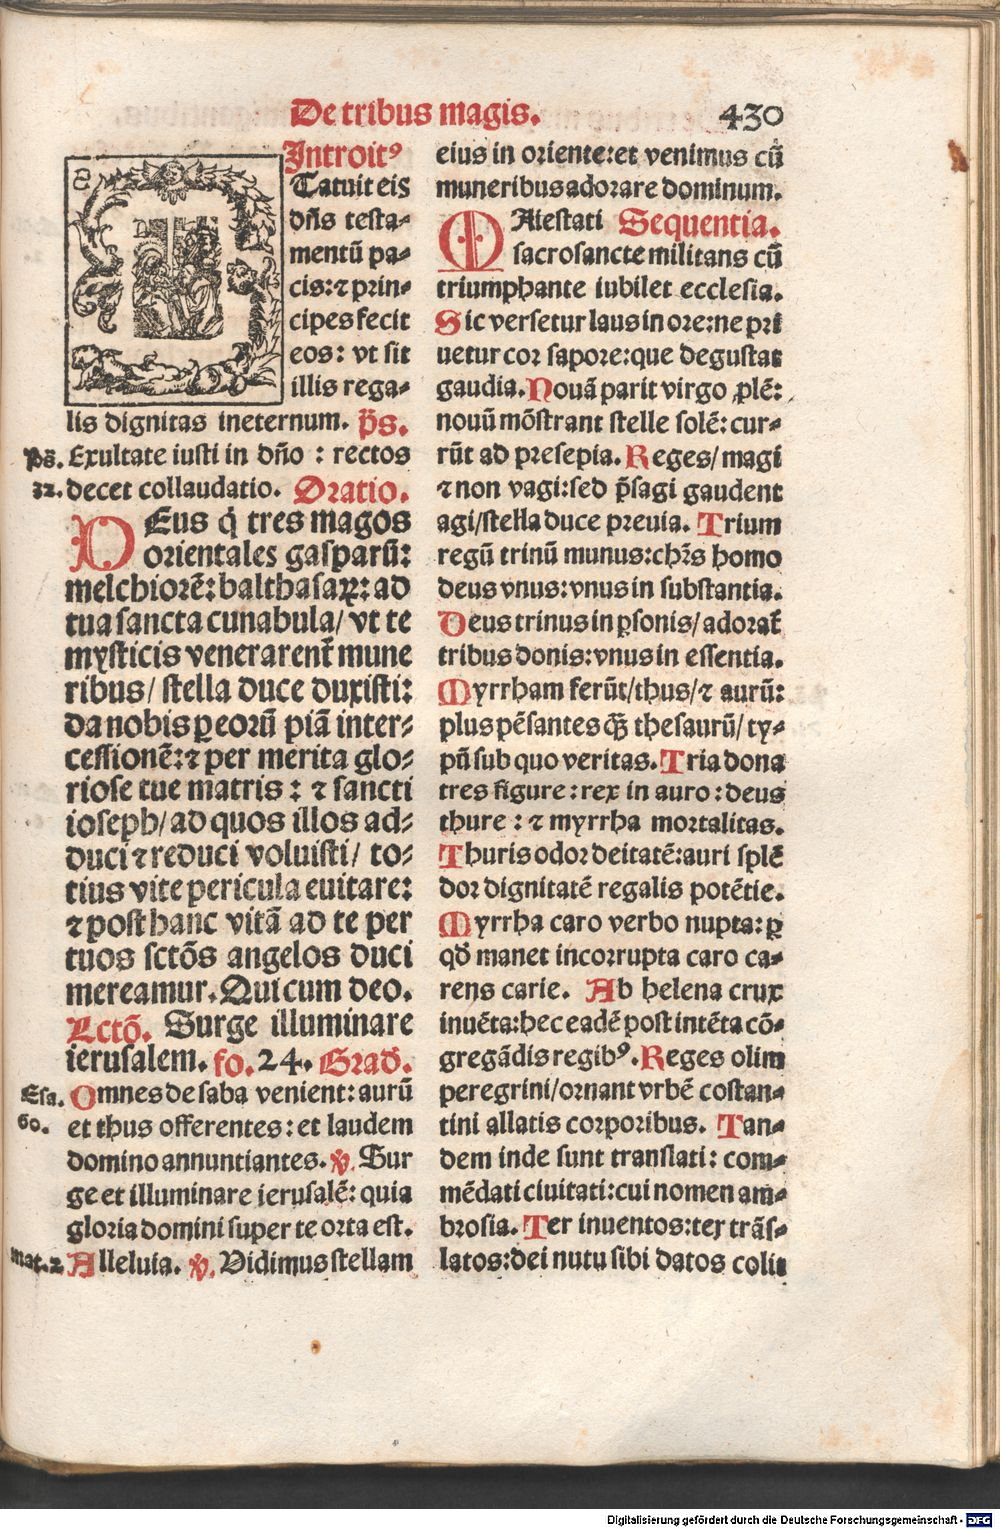 De tribus magis. 430
Introitꝰ
Tatuit eis
dn̄s testa⸗
mentū pa⸗
cis: ⁊ prin⸗
cipes fecit
eos: vt sit
illis rega⸗
lis dignitas ineternum. ps̄.
ps̄. Exultate iusti in dn̄o : rectos
32. decet collaudatio. Oratio.
DEus q̇ tres magos
orientales gasparū:
melchiorē: balthasaꝝ: ad
tua sancta cunabula/ vt te
mysticis venerarent̄ mune
ribus/ stella duce duxisti:
da nobis ꝑ eorū piā inter⸗
cessionē: ⁊ per merita glo⸗
riose tue matris : ⁊ sancti
ioseph/ ad quos illos ad⸗
duci ⁊ reduci voluisti/ to⸗
tius vite pericula euitare:
⁊ post hanc vitā ad te per
tuos sctōs angelos duci
mereamur. Qui cum deo.
Lctō. Surge illuminare
ierusalem. fo. 24. Grad̄.
Esa. Omnes de saba venient: aurū
60. et thus offerentes: et laudem
domino annuntiantes. ℣. Sur
ge et illuminare ierusalē: quia
gloria domini super te orta est.
mat. 2 Alleluia. ℣. Vidimus stellam
eius in oriente: et venimus cū
muneribus adorare dominum.
MAiestati Sequentia.
sacrosancte militans cū
triumphante iubilet ecclesia.
Sic versetur laus in ore: ne pri
uetur cor sapore: que degustat
gaudia. Nouā parit virgo ꝓlē:
nouū mōstrant stelle solē: cur⸗
rūt ad presepia. Reges/ magi
⁊ non vagi: sed p̄sagi gaudent
agi/ stella duce preuia. Trium
regū trinū munus: chr̄s homo
deus vnus: vnus in substantia.
Deus trinus in ꝑsonis/ adorat̄
tribus donis: vnus in essentia.
Myrrham ferūt/ thus/ ⁊ aurū:
plus pēsantes q̄ꝫ thesaurū/ ty⸗
pū sub quo veritas. Tria dona
tres figure : rex in auro : deus
thure : ⁊ myrrha mortalitas.
Thuris odor deitatē: auri splē
dor dignitatē regalis potētie.
Myrrha caro verbo nupta: ꝑ
qd̄ manet incorrupta caro ca⸗
rens carie. Ab helena crux
inuēta: hec eadē post intēta cō⸗
gregādis regibꝰ. Reges olim
peregrini/ ornant vrbē costan⸗
tini allatis corporibus. Tan⸗
dem inde sunt translati: com⸗
mēdati ciuitati: cui nomen am⸗
brosia. Ter inuentos: ter trās⸗
latos: dei nutu sibi datos colit
Digitalisierung gefördert durch die Deutsche Forschungsgemeinschaft - DFG